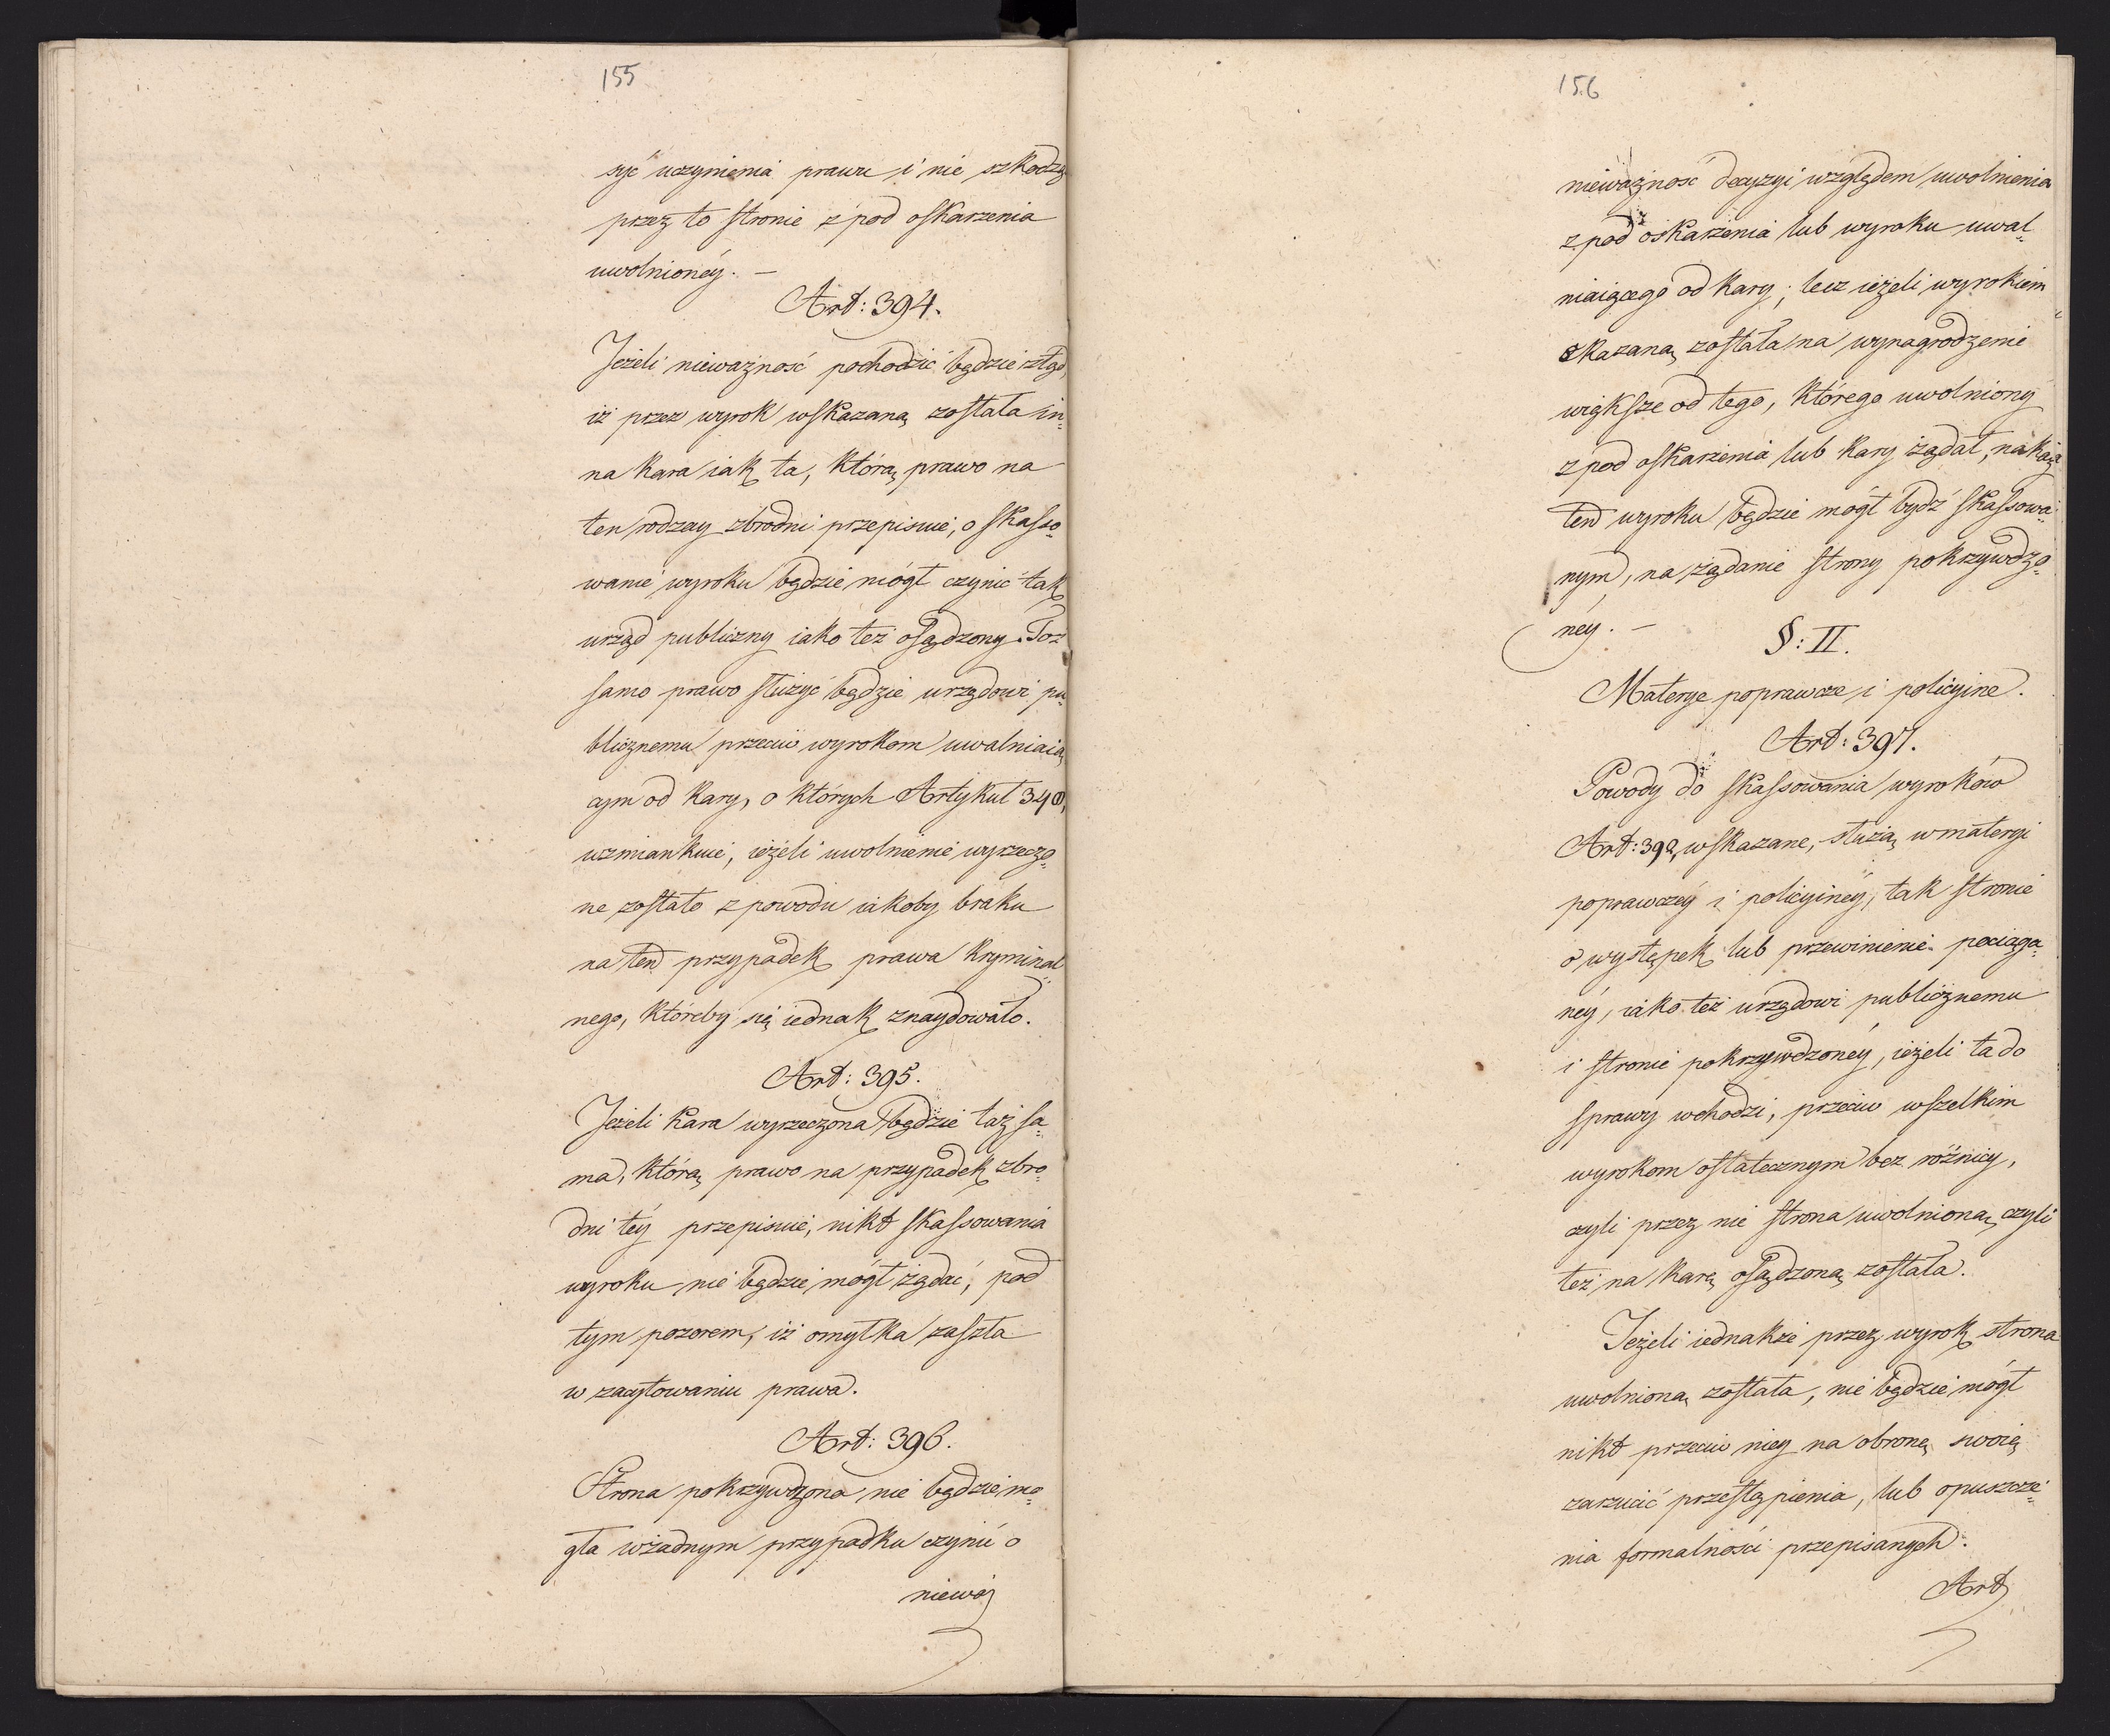 155
syć uczynienia prawu i nie szkodzą
przez to stronie z pod oskarżenia
uwolnionéy. —
Art: 394.
Jeżeli nieważność pochodzić będzie ztąd,
iż przez wyrok wskazaną została in=
na kara iak ta, którą prawo na
ten rodzay zbrodni przepisuie, o skasso=
wanie wyroku będzie mógł czynić tak
urząd publiczny iako też osądzony. Toż
samo prawo służyć będzie urzędowi pu=
blicznemu przeciw wyrokom uwalniaią
cym od kary, o których Artykuł 340,
wzmiankuie, ieżeli uwolnienie wyrzeczo=
ne zostało z powodu iakoby braku
na ten przypadek prawa kryminal=
nego, któreby się iednak znaydowało.
Art: 395.
Jeżeli kara wyrzeczona będzie taż sa=
ma, którą prawo na przypadek zbro=
dni téy przepisuie, nikt skassowania
wyroku nie będzie mógł żądać, pod
tym pozorem, iż omyłka zaszła
w zacytowaniu prawa.
Art: 396.
Strona pokrzywdzona nie będzie mo=
gła w żadnym przypadku czynić o
nieważ
156
nieważność decyzyi względem uwolnienia
z pod oskarżenia lub wyroku uwal=
niaiącego od kary; lecz ieżeli wyrokiem
skazaną została na wynagrodzenie
większe od tego, którego uwolniony
z pod oskarżenia lub kary żądał, nakaz
ten wyroku będzie mógł bydź skassowa=
nym, na żądanie strony pokrzywdzo=
néy. —
§: II.
Materye poprawcze i policyine.
Art: 397.
Powody do skassowania wyroków
Art: 392, wskazane, służą w materyi
poprawczéy i policyinéy, tak stronie
o występek lub przewinienie pociąga=
néy, iako też urzędowi publicznemu
i stronie pokrzywdzonéy, ieżeli ta do
sprawy wchodzi, przeciw wszelkim
wyrokom ostatecznym bez różnicy,
czyli przez nie strona uwolnioną, czyli
też na karę osądzoną została.
Jeżeli iednakże przez wyrok strona
uwolnioną została, nie będzie mógł
nikt przeciw niey na obronę swoię
zarzucić przestąpienia, lub opuszcze=
nia formalności przepisanych.
Art